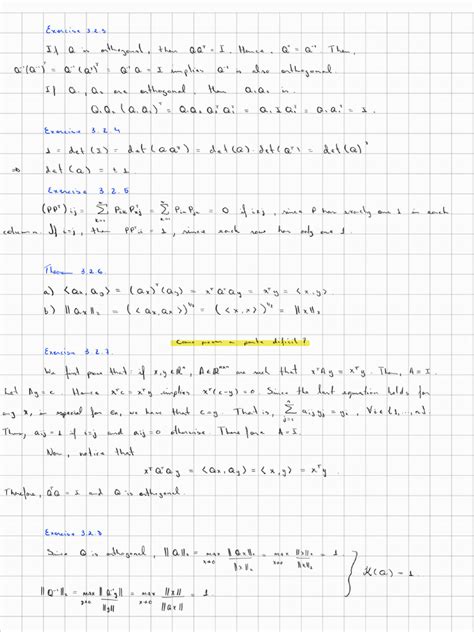 Exercise 3.2.3
If Q is orthogonal, then QQᵀ = I. Hence, Qᵀ = Q⁻¹. Then,
Q⁻¹(Q⁻¹)ᵀ = Q⁻¹(Qᵀ)ᵀ = Q⁻¹Q = I implies Q⁻¹ is also orthogonal.
If Q₁, Q₂ are orthogonal, then Q₁Q₂ is.
Q₁Q₂(Q₁Q₂)ᵀ = Q₁Q₂Q₂ᵀQ₁ᵀ = Q₁IQ₁ᵀ = Q₁Q₁ᵀ = I.
Exercise 3.2.4
1 = det(I) = det(QQᵀ) = det(Q).det(Qᵀ) = det(Q)²
⇒ det(Q) = ±1
Exercise 3.2.5
(PPᵀ)ij = Σ Pik Pᵀkj = Σ Pik Pjk = 0 if i≠j, since P has exactly one 1 in each
column. If i=j, then PPᵀii = 1, since each row has only one 1.
Theorem 3.2.6
a) <Qx, Qy> = (Qx)ᵀ(Qy) = xᵀQᵀQy = xᵀy = <x, y>
b) ||Qx||₂ = (<Qx, Qx>)^1/2 = (<x, x>)^1/2 = ||x||₂
Como provar a parte difícil?
Exercise 3.2.7.
We first prove that if x, y ∈ ℝⁿ, A ∈ ℝⁿˣⁿ are such that xᵀAy = xᵀy. Then, A = I.
Let Ay = c. Hence xᵀc = xᵀy implies xᵀ(c-y) = 0. Since the last equation holds for
any x, in special for en, we have that c=y. That is, Σ aij yj = yi, ∀i∈{1,...,n}
Then, aij = 1 if i=j and aij = 0 otherwise. Therefore A = I.
Now, notice that
xᵀQᵀQy = <Qx, Qy> = <x, y> = xᵀy.
Therefore, QᵀQ = I and Q is orthogonal.
Exercise 3.2.8
Since Q is orthogonal, ||Q||₂ = max x≠0 ||Qx||₂ / ||x||₂ = max x≠0 ||x||₂ / ||x||₂ = 1
||Q⁻¹||₂ = max y≠0 ||Q⁻¹y|| / ||y|| = max x≠0 ||x|| / ||Qx|| = 1 } K(Q) = 1